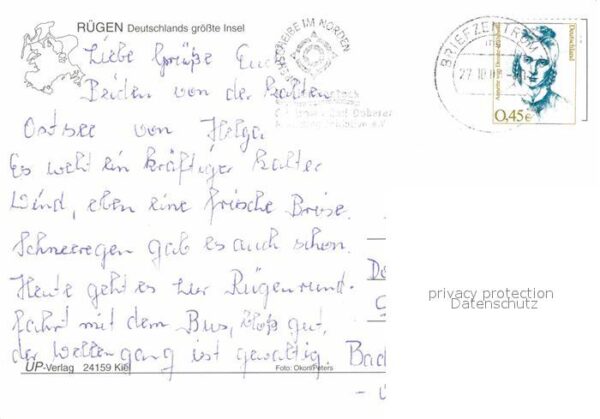 RÜGEN Deutschlands größte Insel
Liebe Grüße Euch
Beiden von der kalten
Ostsee von Helga
Es weht ein kräftiger kalter
Wind, eben eine frische Brise.
Schneeregen gab es auch schon.
Heute geht es zur Rügenrund-
fahrt mit dem Bus, bloß gut,
der Wellengang ist gewaltig.
UP-Verlag 24159 Kiel
Foto: Okon/Peters
IM NORDEN
BRIEFZENTRUM
27.10.
Deutschland
0,45€
privacy protection
Datenschutz